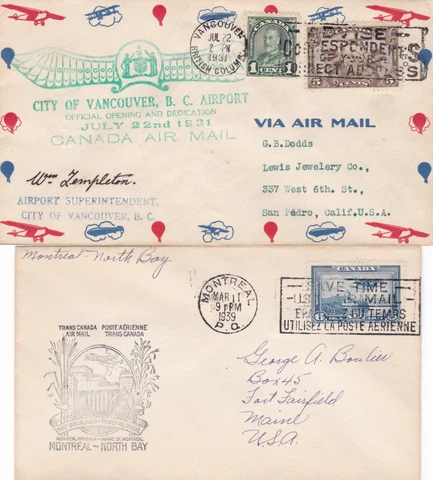 VANCOUVER
JUL 22
PM
1931
BRITISH COLUMBIA
CANADA
1 CENT 1
CANADA
5 5
CITY OF VANCOUVER, B. C. AIRPORT
OFFICIAL OPENING AND DEDICATION
JULY 22nd 1931
CANADA AIR MAIL
VIA AIR MAIL
G.B.Dodds
Lewis Jewelery Co.,
337 West 6th. St.,
San Pédro, Calif.U.S.A.
Wm Templeton.
AIRPORT SUPERINTENDENT,
CITY OF VANCOUVER, B. C.
Montreal - North Bay
MONTREAL
MAR 11
9 PM
1939
P.Q.
CANADA
VE TIME
MAIL
DU TEMPS
UTILISEZ LA POSTE AÉRIENNE
TRANS CANADA POSTE AÉRIENNE
AIR MAIL TRANS CANADA
MONTREAL - NORTH BAY
George A.
Box 45
Fort Fairfield
Maine
U.S.A.